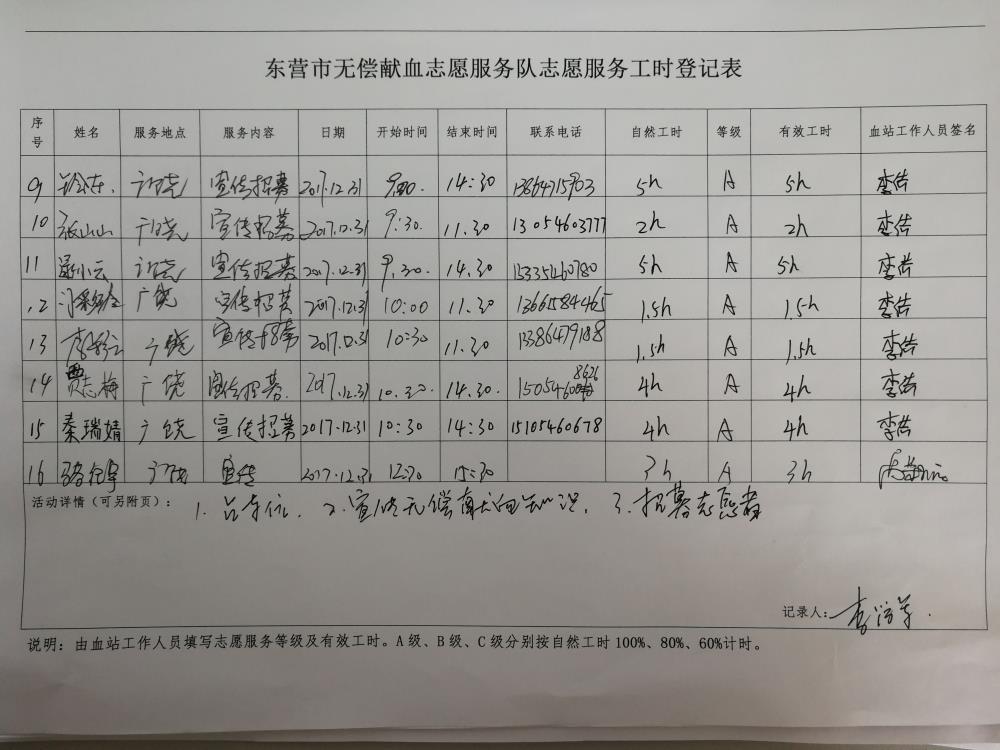 东营市无偿献血志愿服务队志愿服务工时登记表
序号 姓名 服务地点 服务内容 日期 开始时间 结束时间 联系电话 自然工时 等级 有效工时 血站工作人员签名
9 广饶 宣传招募 2017.12.31 14:30 5h A 5h 李浩
10 张山山 广饶 宣传招募 2017.12.31 9:30 11.30 13054603777 2h A 2h 李浩
11 广饶 宣传招募 2017.12.31 9.30. 14.30 15335460780 5h A 5h 李浩
12 广饶 宣传招募 2017.12.31 10:00 11.30 13661584465 1.5h A 1.5h 李浩
13 广饶 宣传招募 2017.12.31 10:30 11.30 1.5h A 1.5h 李浩
14 贾志梅 广饶 宣传招募. 2017.12.31 10.30. 14.30. 4h A 4h 李浩
15 秦瑞婧 广饶 宣传招募 2017.12.31 10:30 14:30 15105460678 4h A 4h 李浩
16 广饶 宣传 2017.12.31 12:30 15:30 3h A 3h
活动详情（可另附页）： 1. 2.宣传无偿献血知识. 3.招募志愿者
记录人:
说明：由血站工作人员填写志愿服务等级及有效工时。A级、B级、C级分别按自然工时100%、80%、60%计时。